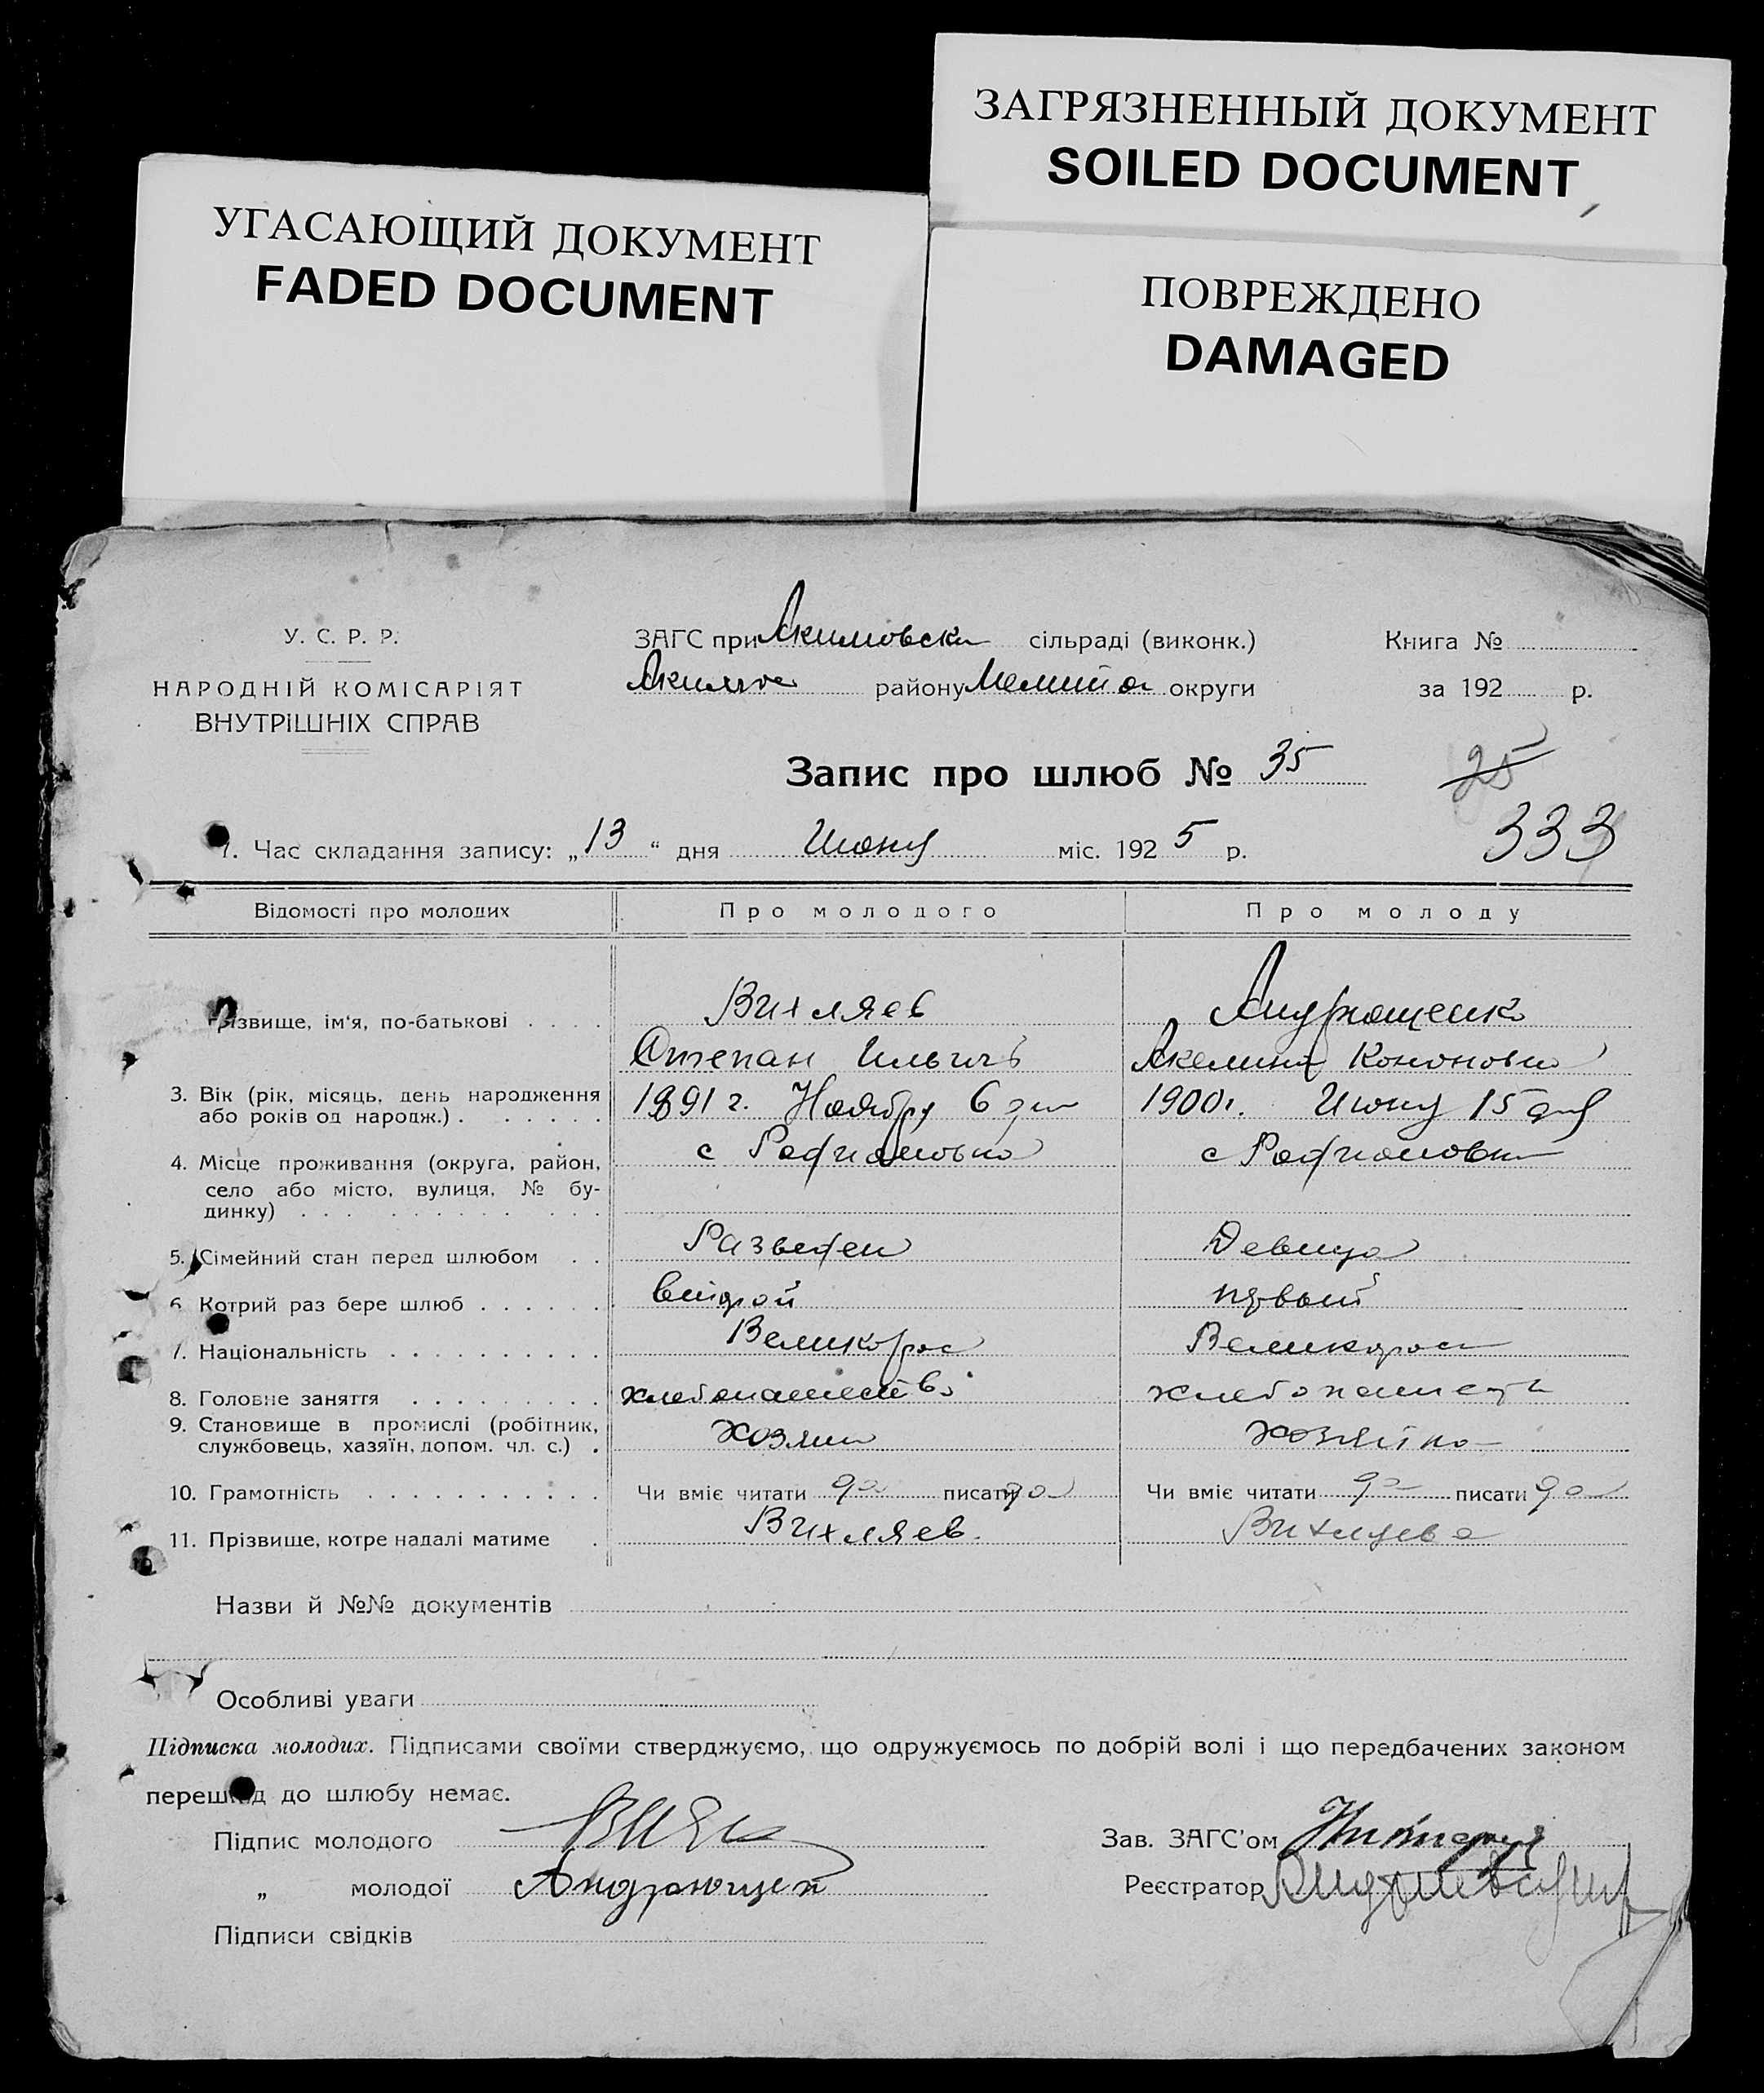 ЗАГРЯЗНЕННЫЙ ДОКУМЕНТ
SOILED DOCUMENT
УГАСАЮЩИЙ ДОКУМЕНТ
FADED DOCUMENT
ПОВРЕЖДЕНО
DAMAGED
У. С. Р. Р.
НАРОДНІЙ КОМІСАРІЯТ
ВНУТРІШНІХ СПРАВ
ЗАГС при Акимовска сільраді (виконк.)
району округи
Книга №
за 192 р.
Запис про шлюб № 35
25
333
1. Час складання запису: „13“ дня Июня міс. 1925 р.
Відомості про молодих Про молодого Про молоду
Прізвище, ім'я, по-батькові Вихляев Андрющенко
Степан Ильичь Акелина Кононовна
3. Вік (рік, місяць, день народження 1891 г. Ноября 6 дня 1900 г. Июня 15 дня
або років од народж.)
4. Місце проживання (округа, район, с Радионовка с Радионовка
село або місто, вулиця, № бу-
динку)
5. Сімейний стан перед шлюбом Разведен Девица
6. Котрий раз бере шлюб второй первый
7. Національність Великорос Великорос
8. Головне заняття хлебопашество
9. Становище в промислі (робітник,
службовець, хазяїн, допом. чл. с.) Хозяин хозяйка
10. Грамотність Чи вміє читати да писати да Чи вміє читати да писати да
11. Прізвище, котре надалі матиме Вихляев. Вихляева
Назви й №№ документів
Особливі уваги
Підписка молодих. Підписами своїми стверджуємо, що одружуємось по добрій волі і що передбачених законом
перешкод до шлюбу немає.
Підпис молодого
Зав. ЗАГС'ом
„ молодої Андрющен
Реєстратор
Підписи свідків